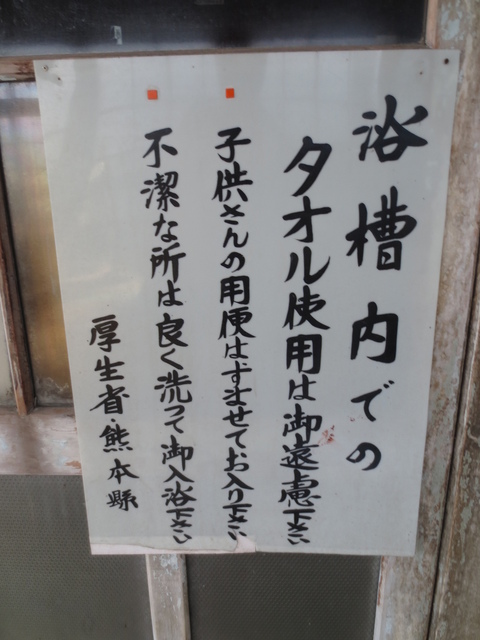 浴槽内での
タオル使用は御遠慮下さい
子供さんの用便はすませてお入り下さい
不潔な所は良く洗って御入浴下さい
厚生省熊本縣